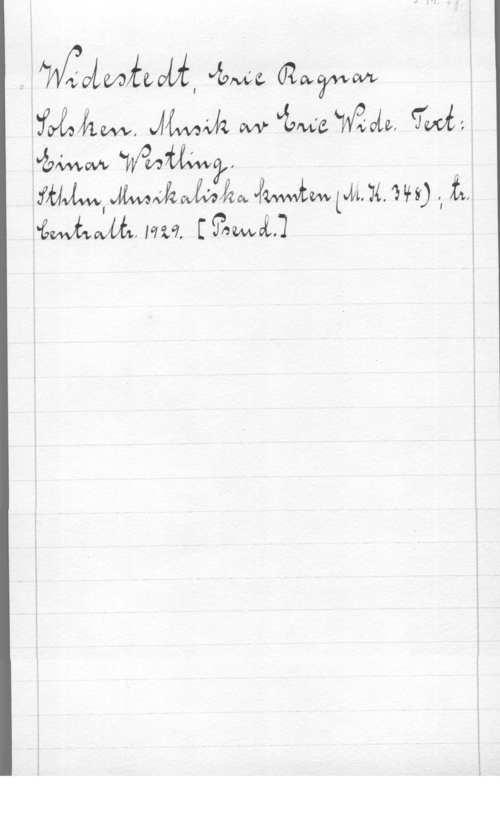 Widestedt, Eric Ragnar
Solsken. Musik av Eric Wide. Text:
Einar Westling.
Sthlm, Musikaliska knuten (M.K. 348) ; tr.
Centraltr. 1929. [Pseud.]